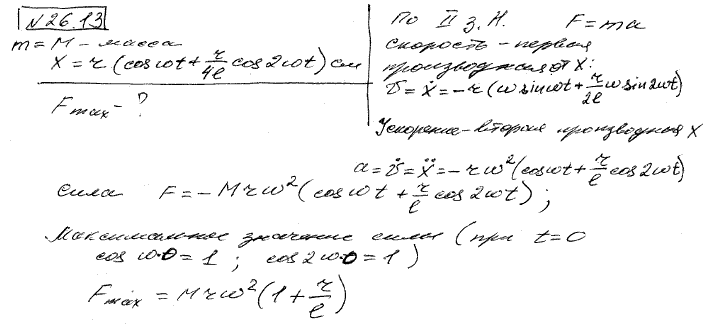 №26.13
m = M – масса
X = r (cos ωt + r/4l cos 2ωt) см
Fmax – ?
По II з. Н. F = ma
скорость – первая
производная от X:
v = ẋ = –r (ω sin ωt + r/2l ω sin 2ωt)
Ускорение – вторая производная X
a = v̇ = ẍ = –rω² (cos ωt + r/l cos 2ωt)
Сила F = –Mrω² (cos ωt + r/l cos 2ωt);
Максимальное значение силы (при t = 0
cos ω·0 = 1; cos 2ω·0 = 1)
Fmax = Mrω² (1 + r/l)